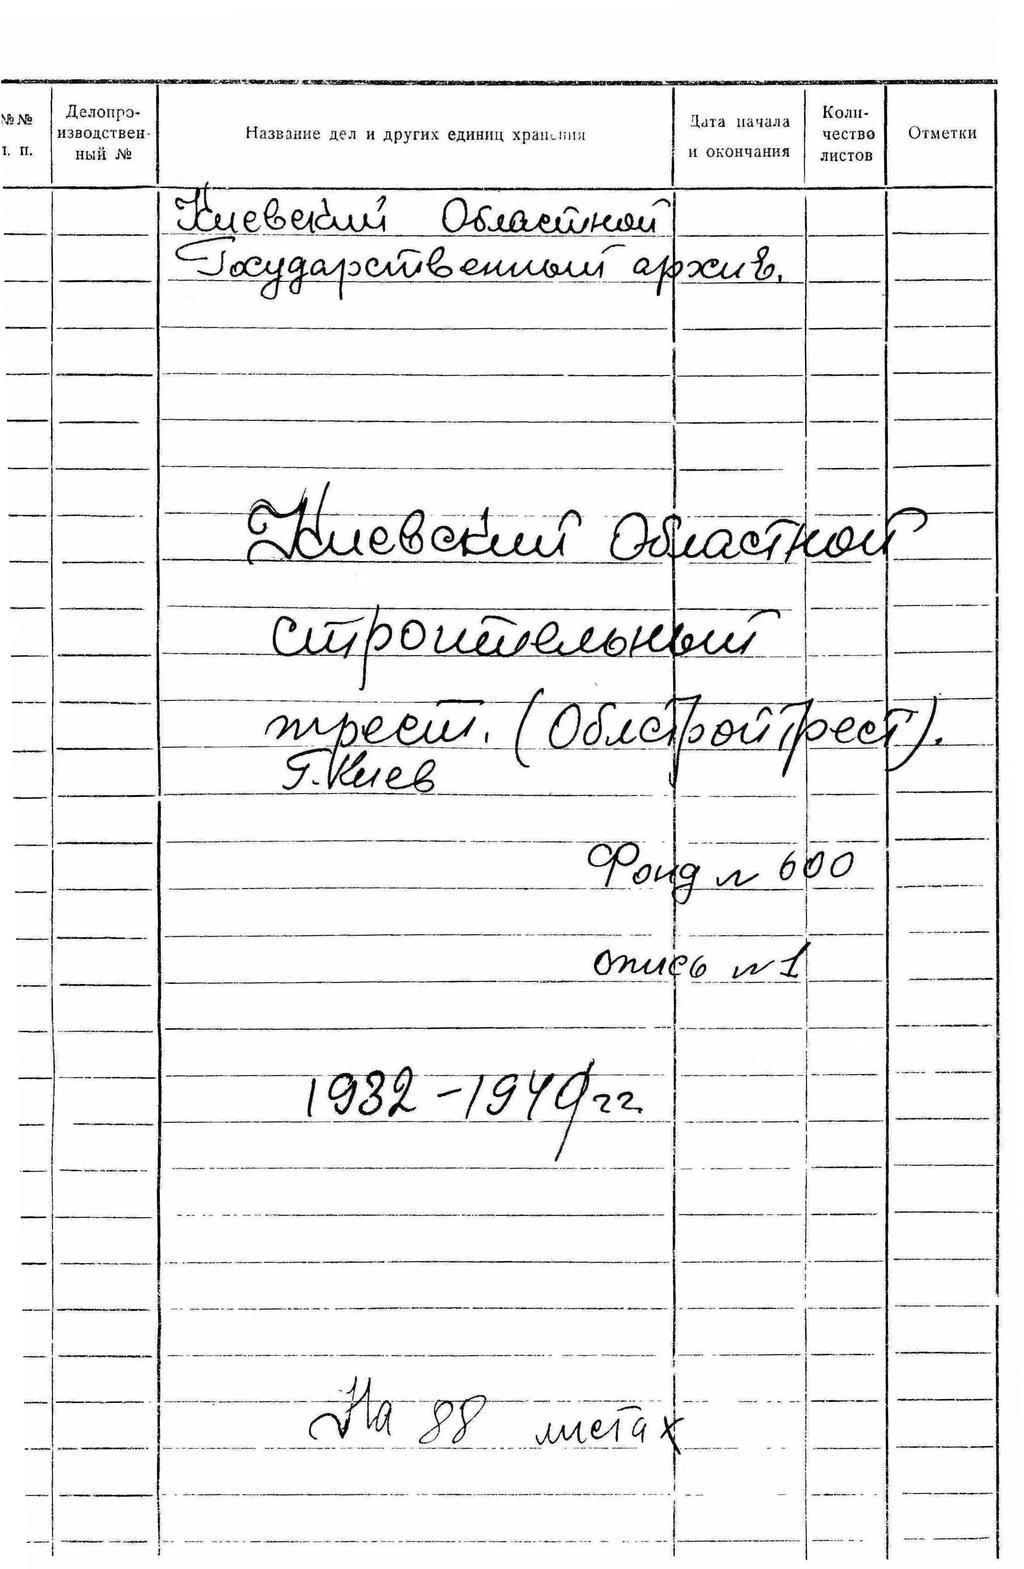 №№ п. п.
Делопро-
изводствен-
ный №
Название дел и других единиц хранения
Дата начала
и окончания
Коли-
чество
листов
Отметки
Киевский Областной
Государственный архив.
Киевский Областной
строительный
трест. (Облстройтрест).
г. Киев
Фонд № 600
опись № 1
1932-1940 гг.
На 88 листах